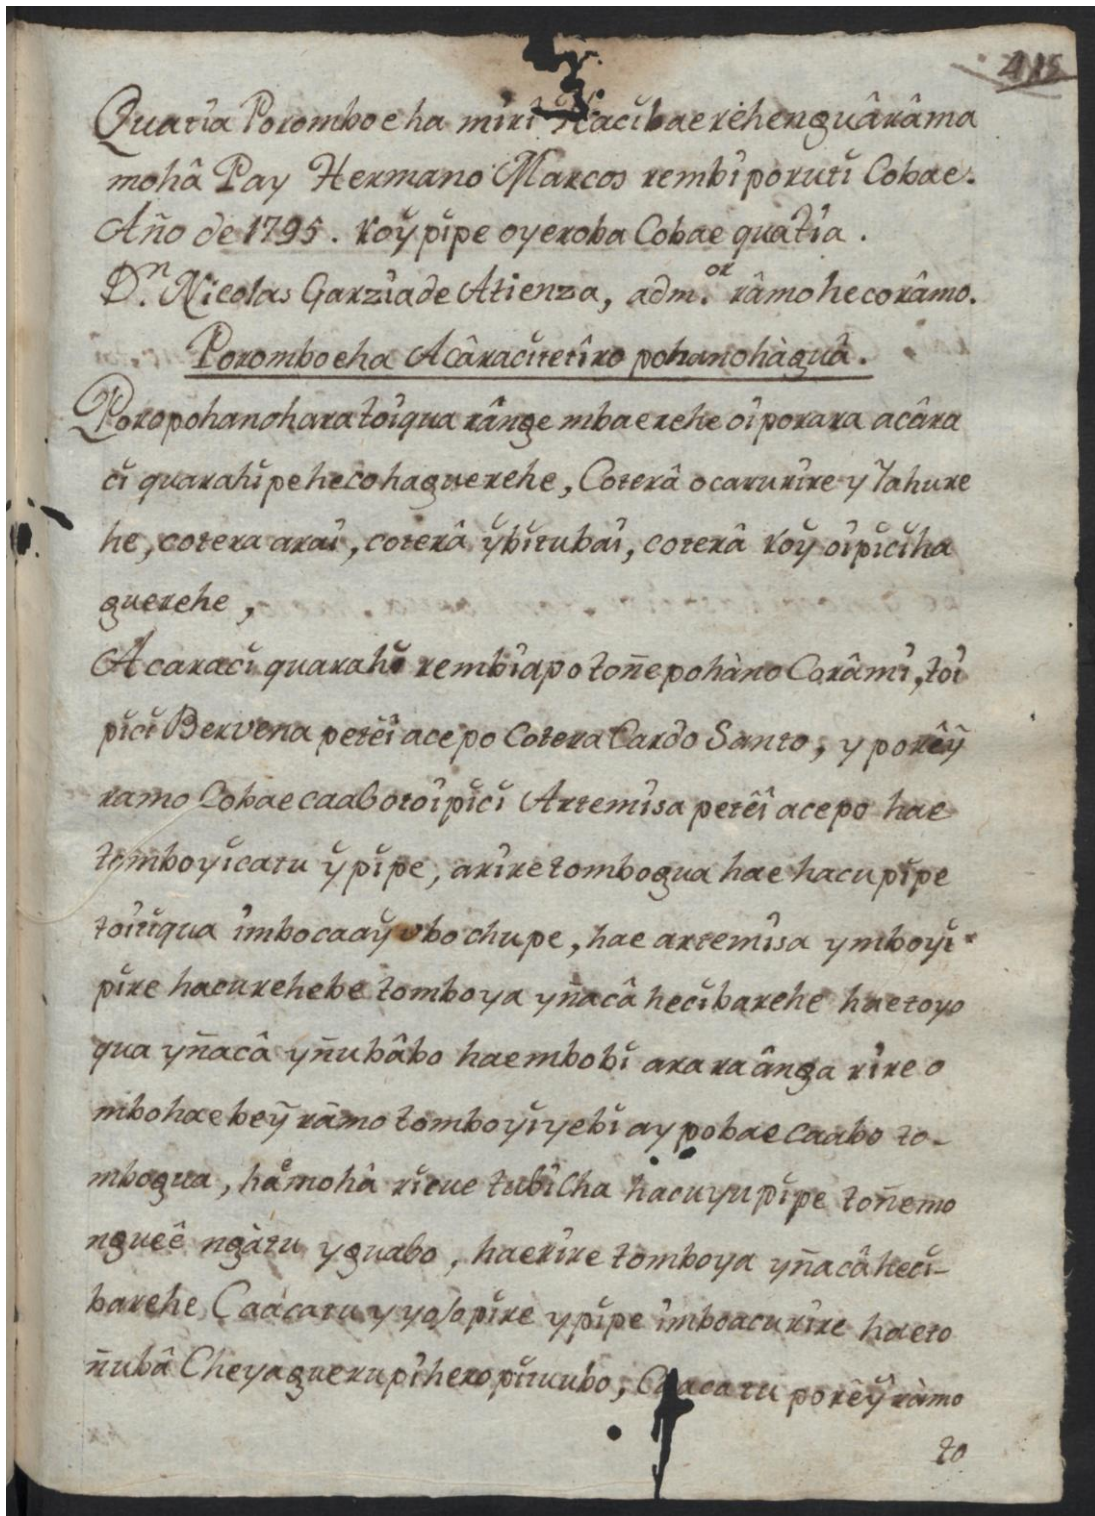 415
Quatĭa Poromboeha mĭrĭ Hacĭbaerehenguârâma
mohâ Pay Hermano Marcos rembĭporutĭ Cobae.
Año de 1795. Roy̆pĭpe oyeroba Cobae quatĭa.
D.ⁿ Nicolas Garzia de Atienza, adm.ᵒʳ râmohecorâmo.
Poromboeha Acâracĭtetîro pohanohàguâ.
Poropohanohara toîqua rânge mbaerehe oiporara acâra
cĭ quarahĭpehecohaguerehe, Coterâ ocarurĭre y Iahure
he, cotera araĭ, coterâ y̆bĭtubaĭ, coterâ roy̆ oĭpĭcĭha
guerehe,
Acaracĭ quarahĭ rembĭapo toñepohàno Corâmĭ, toĭ
pĭcĭ Bervena peteĭ acepo Cotera Cardo Santo, y porêy̆
ramo Cobae caabotoĭpĭcĭ Artemĭsa petêĭ acepo hae
tomboyĭcatu y̆pĭpe, arĭretombogua hae hacupĭpe
toĭtĭqua ĭmbocaay̆ubo chupe, hae artemĭsa ymboyĭ
pĭre hacurehebe tomboya yñacâ hecĭbarehe haetoyo
qua yñacâ yñubâbo haembobĭ araraânga rĭre o
mbohaebey̆ râmo tomboyĭyebĭ aypobae caabo to-
mbogua, haemohâ rĭcue tubĭcha hacuyupĭpe toñemo
ngueê ngàtu yguabo, haerĭre tomboya yñacâhecĭ-
barehe Caàcatu y yosopĭre ypĭpe ĭmboacurĭre haeto
ñubâ Cheyaguerupĭheropĭtuubo, Caacatu porêy̆ràmo
to